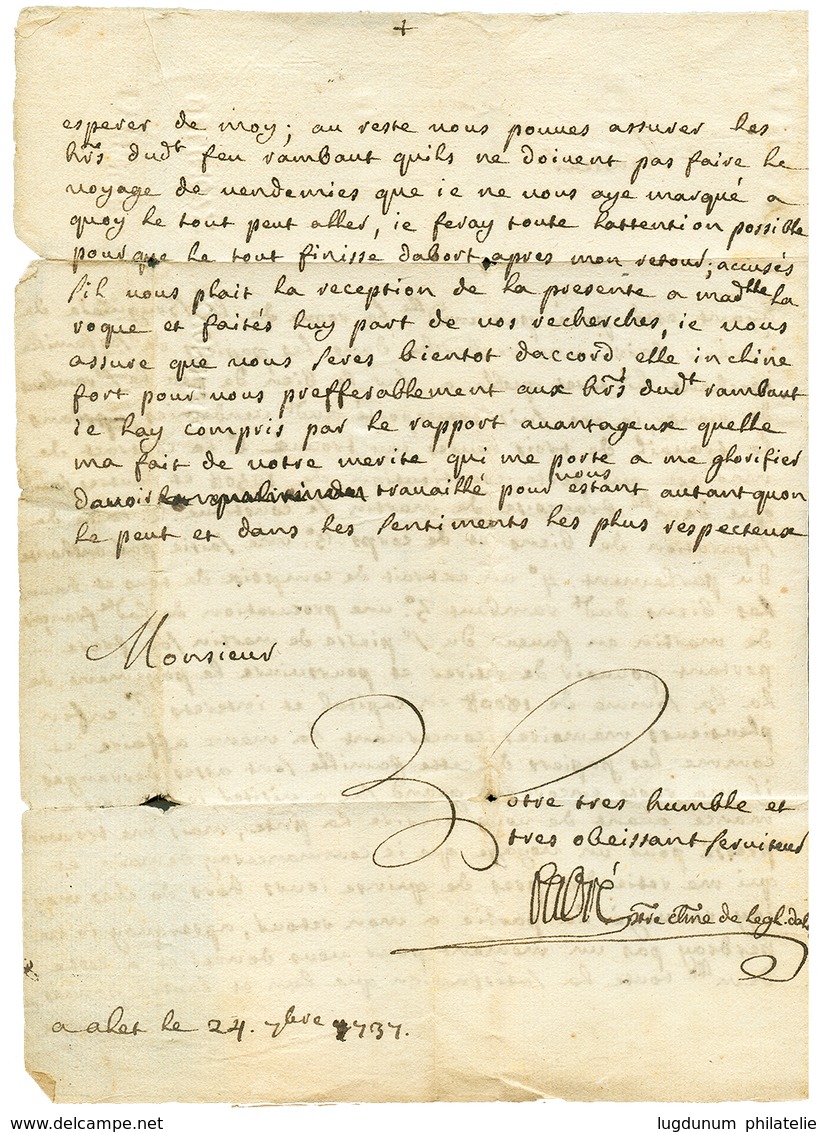 +
esperer de moy; au reste vous pouves assurer les
hrs dudt feu rambaut quils ne doivent pas faire le
voyage de vendemies que ie ne vous aye marqué a
quoy le tout peut aller, ie feray toute lattention possible
pour que le tout finisse dabort apres mon retour; accusés
sil vous plait la reception de la presente a madlle la
roque et faités luy part de vos recherches, ie vous
assure que vous seres bientot daccord elle incline
fort pour vous prefferablement aux hrs dudt rambaut
ie lay compris par le rapport avantageux quelle
ma fait de votre merite qui me porte a me glorifier
davoir travaillé pour vous estant autant quon
le peut et dans les sentiments les plus respecteux
Monsieur
Votre tres humble et
tres obeissant serviteur
ptre de legl. dal
a alet le 24. 7bre 1737.
lugdunum philatelie
www.delcampe.net